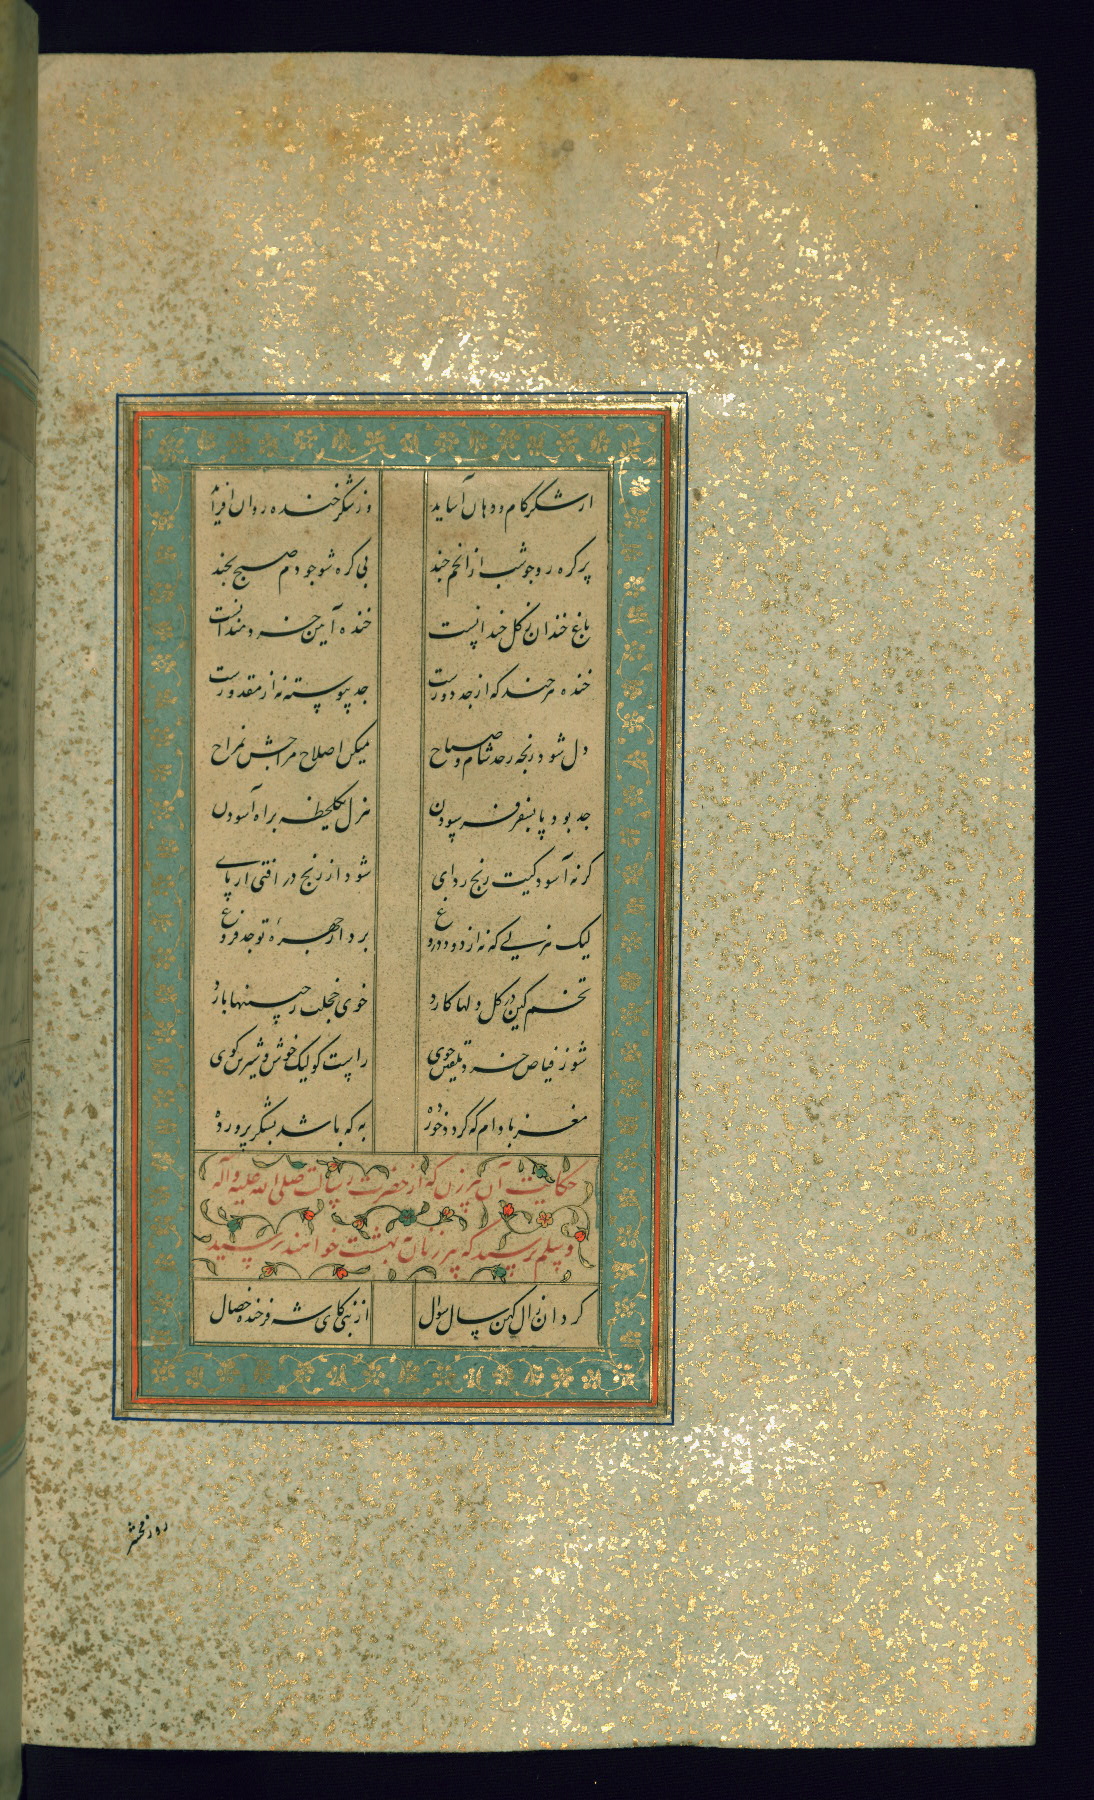 از شکر کام و دهان آساید وز شکرخنده روان افزاید
پر گره رو چو شب از انجم چند بی گره شو چو دم صبح بخند
باغ خندان ز گل خندانست خنده آیین خردمندانست
خنده هر چند که از جد دورست جد پیوسته نه از مقدورست
دل شود رنجه ز جد شام و صباح میکن اصلاح مزاجش ز مزاح
جد بود پا بسفر فرسودن هزل یکلحظه براه آسودن
گر نه آسودگیت رنج زدای شود از رنج در افتی از پای
لیک هزلی که نه از دود دروغ برد از چهره تو جد فروغ
تخم کین در گل دلها کارد خوی خجلت ز جبینها بارد
شو ز فیاض خرد تلقین جوی راست گو لیک خوش و شیرین گوی
مغز بادام که گردد خورده به که باشد بشکر پرورده
حکایت آن پیرزن که از حضرت رسالت صلی الله علیه وآله
وسلم پرسید که پیر زنان به بهشت خواهند رسید
کرد آن زال کهن سال سوال از نبی کای شه فرخنده خصال
روز محشر